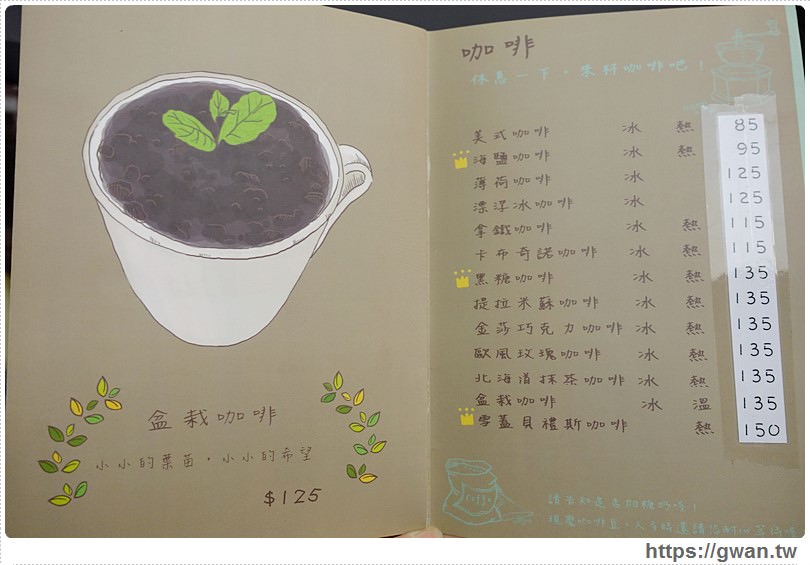 盆栽咖啡
小小的葉苗，小小的希望
$125
咖啡
休息一下，來杯咖啡吧！
美式咖啡 冰 熱 85
海鹽咖啡 冰 熱 95
薄荷咖啡 冰 125
漂浮冰咖啡 冰 125
拿鐵咖啡 冰 熱 115
卡布奇諾咖啡 冰 熱 115
黑糖咖啡 冰 熱 135
提拉米蘇咖啡 冰 熱 135
金莎巧克力咖啡 冰 熱 135
歐風玫瑰咖啡 冰 熱 135
北海道抹茶咖啡 冰 熱 135
盆栽咖啡 冰 溫 135
雪蓋貝禮斯咖啡 熱 150
請告知是否加糖奶唷！
現磨咖啡豆，人多時還請您耐心等候
https://gwan.tw